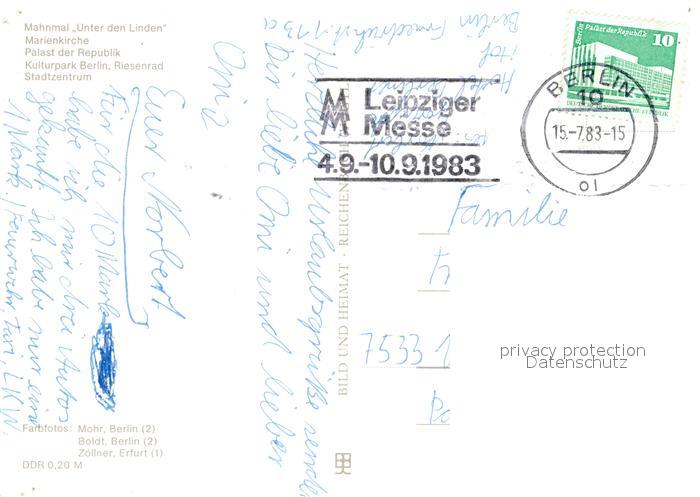 Mahnmal „Unter den Linden"
Marienkirche
Palast der Republik
Kulturpark Berlin, Riesenrad
Stadtzentrum
Herzliche Urlaubsgrüße sendet
Dir liebe Omi und lieber
Euer Norbert
Für die 10 Mark
habe ich mir drei Autos
gekauft. Ich habe nur eine
1 Mark / Feuerwehr, Taxi, LKW.
Farbfotos: Mohr, Berlin (2)
Boldt, Berlin (2)
Zöllner, Erfurt (1)
DDR 0,20 M
BILD UND HEIMAT · REICHEN
Berlin Friedrichstr. 113 a
Hof
Leipziger
Messe
4.9.-10.9.1983
Berlin Palast der Republik
10
BERLIN
10
15.-7.83-15
01
Familie
7533 1
privacy protection
Datenschutz